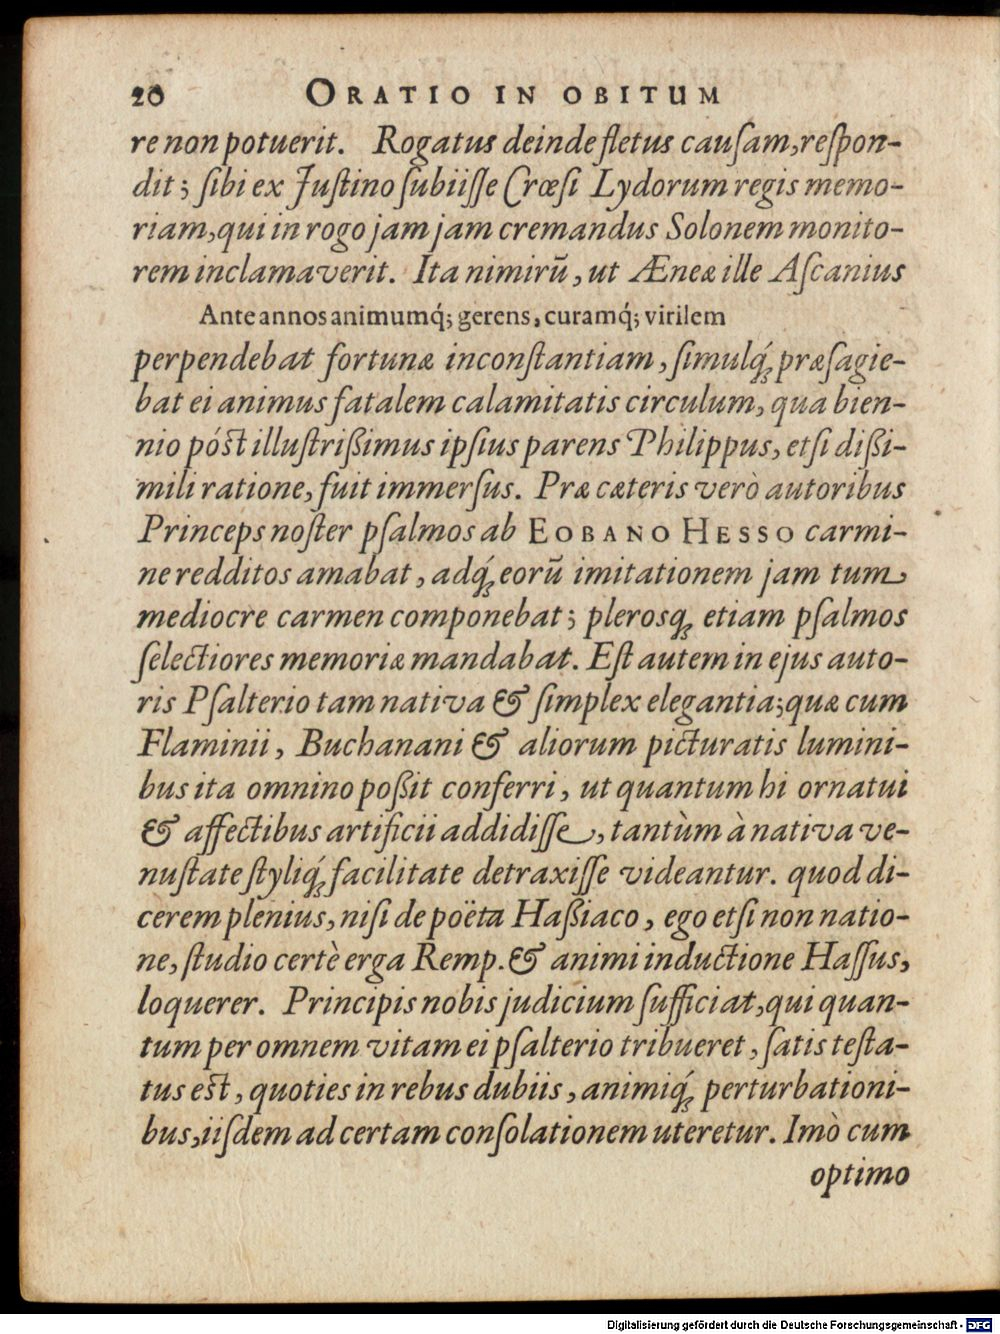 20 ORATIO IN OBITUM
re non potuerit. Rogatus deinde fletus cauſam, reſpon-
dit; ſibi ex Juſtino ſubiiſſe Crœſi Lydorum regis memo-
riam, qui in rogo jam jam cremandus Solonem monito-
rem inclamaverit. Ita nimirũ, ut Æneæ ille Aſcanius
Ante annos animumq́; gerens, curamq́; virilem
perpendebat fortunæ inconſtantiam, ſimulq́; præſagie-
bat ei animus fatalem calamitatis circulum, qua bien-
nio póst illuſtrißimus ipſius parens Philippus, etſi dißi-
mili ratione, fuit immerſus. Præ cæteris verò autoribus
Princeps noſter pſalmos ab EOBANO HESSO carmi-
ne redditos amabat, adq́; eorũ imitationem jam tum
mediocre carmen componebat; plerosq; etiam pſalmos
ſelectiores memoriæ mandabat. Eſt autem in ejus auto-
ris Pſalterio tam nativa & ſimplex elegantia; quæ cum
Flaminii, Buchanani & aliorum picturatis lumini-
bus ita omnino poßit conferri, ut quantum hi ornatui
& affectibus artificii addidiſſe, tantùm à nativa ve-
nuſtate ſtyliq́; facilitate detraxiſſe videantur. quod di-
cerem plenius, niſi de poëta Haßiaco, ego etſi non natio-
ne, ſtudio certè erga Remp. & animi inductione Haſſus,
loquerer. Principis nobis judicium ſufficiat, qui quan-
tum per omnem vitam ei pſalterio tribueret, ſatis teſta-
tus est, quoties in rebus dubiis, animiq́; perturbationi-
bus, iiſdem ad certam conſolationem uteretur. Imò cum
optimo
Digitalisierung gefördert durch die Deutsche Forschungsgemeinschaft - DFG